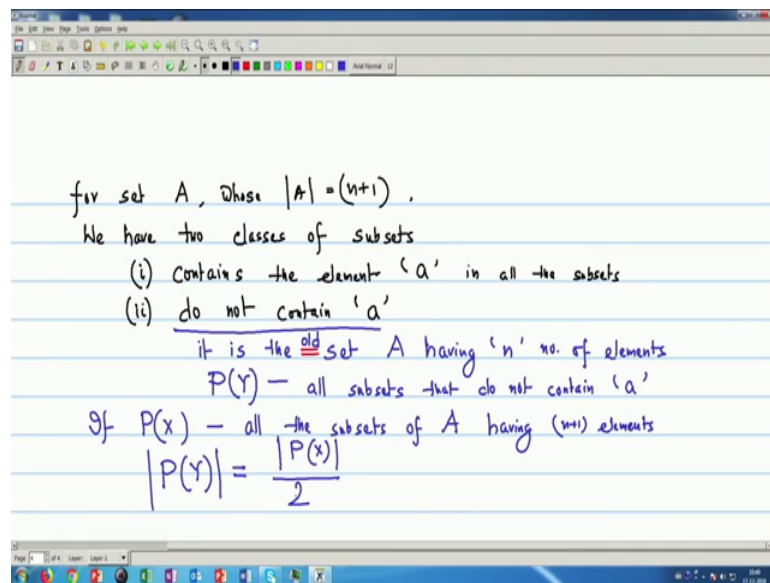 Journal
File Edit View Page Tools Options Help
Arial Normal 12
for set A, whose |A| = (n+1).
We have two classes of subsets
(i) contains the element 'a' in all the subsets
(ii) do not contain 'a'
it is the old set A having 'n' no. of elements
P(Y) — all subsets that do not contain 'a'
If P(X) — all the subsets of A having (n+1) elements
|P(Y)| = |P(X)| / 2
Page 4 of 4 Layer: Layer 1